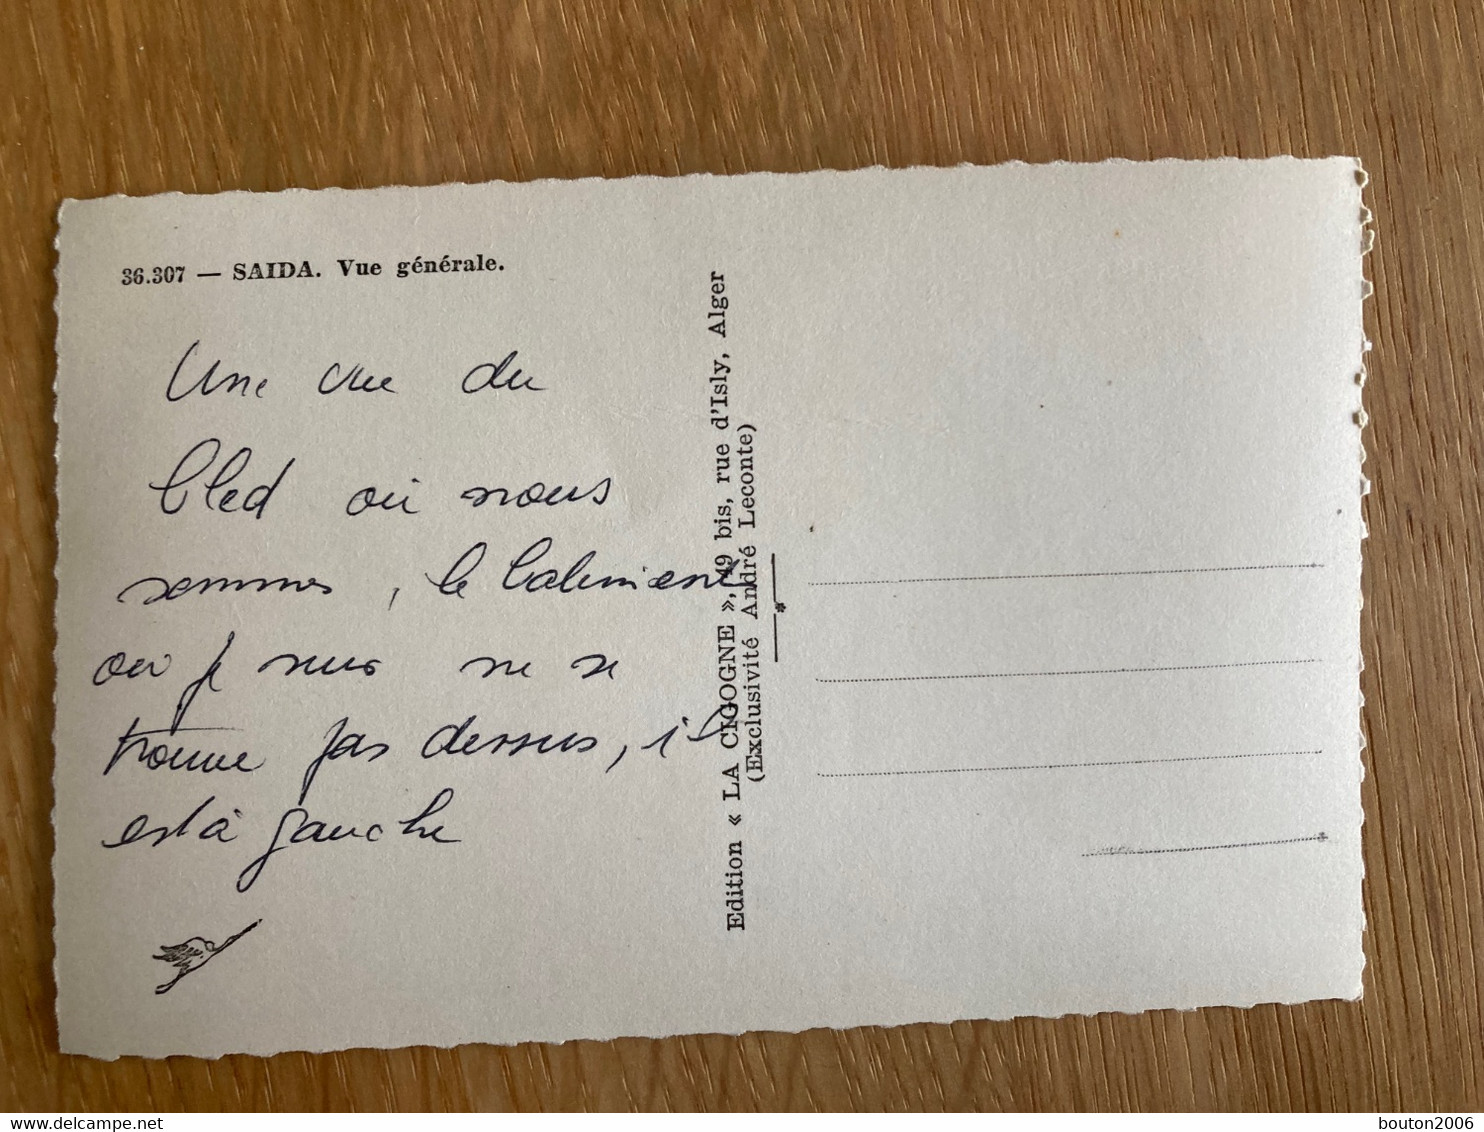 36.307 — SAIDA. Vue générale.
Une vue du
bled où nous
sommes, le batiment
où je suis ne se
trouve pas dessus, il
est à gauche
Edition « LA CIGOGNE », 49 bis, rue d'Isly, Alger
(Exclusivité André Leconte)
bouton2006